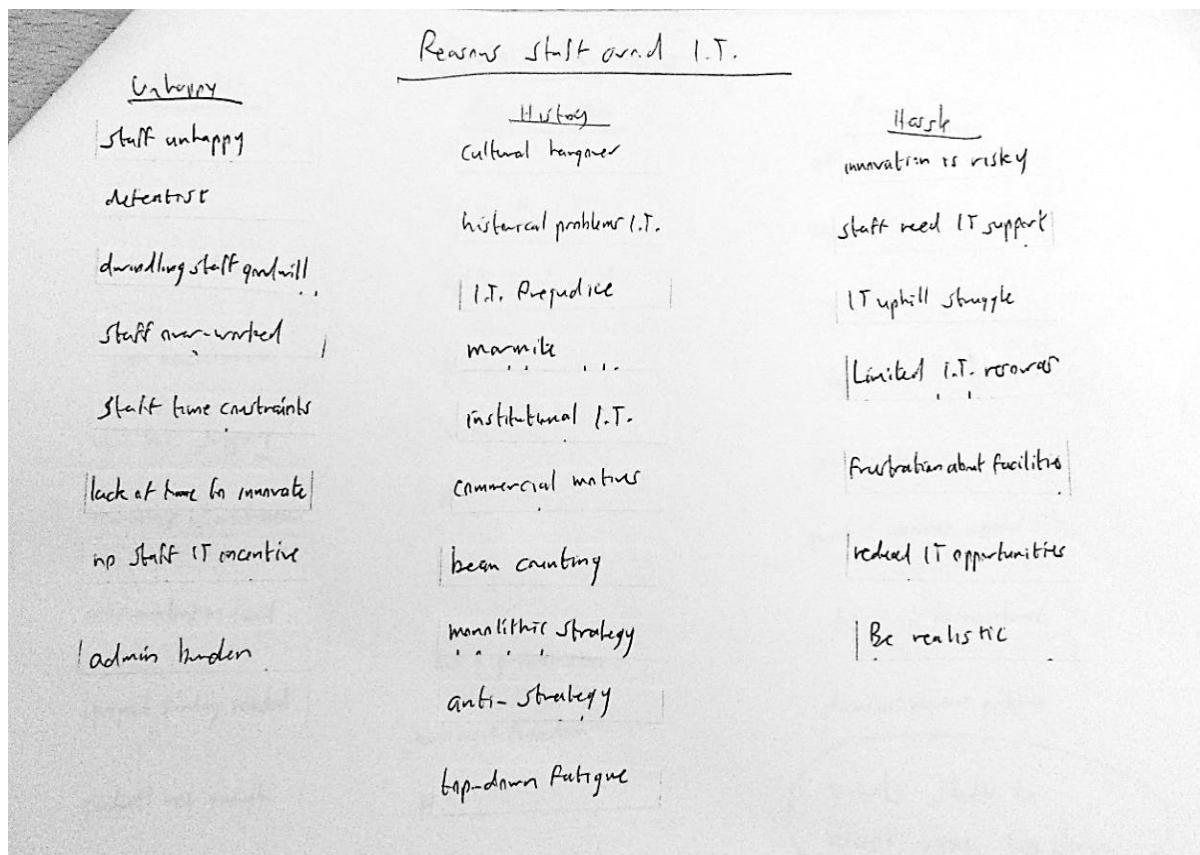 Reasons staff avoid I.T.
Unhappy
staff unhappy
defeatist
dwindling staff goodwill
staff over-worked
Staff time constraints
lack of time to innovate
no staff IT incentive
admin burden
History
cultural hangover
historical problems I.T.
I.T. Prejudice
marmite
institutional I.T.
commercial motives
bean counting
monolithic strategy
anti-strategy
top-down fatigue
Hassle
innovation is risky
staff need IT support
IT uphill struggle
Limited I.T. resources
Frustration about facilities
reduced IT opportunities
Be realistic